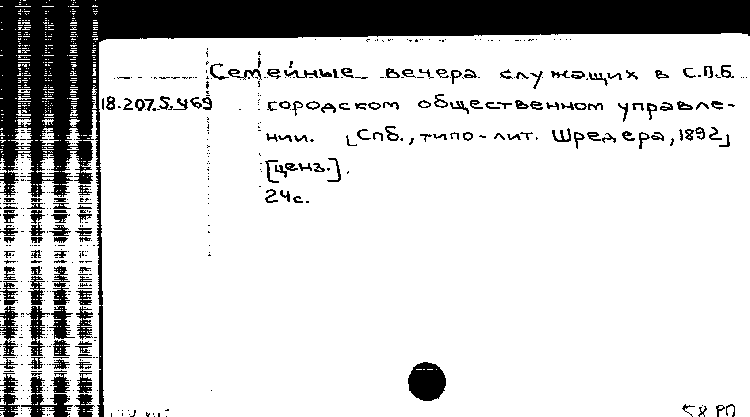 Семейные вечера служащих в С.П.Б.
18.207.5.469 городском общественном управле-
нии. [Спб., типо-лит. Шредера, 1892]
[ценз.].
24с.